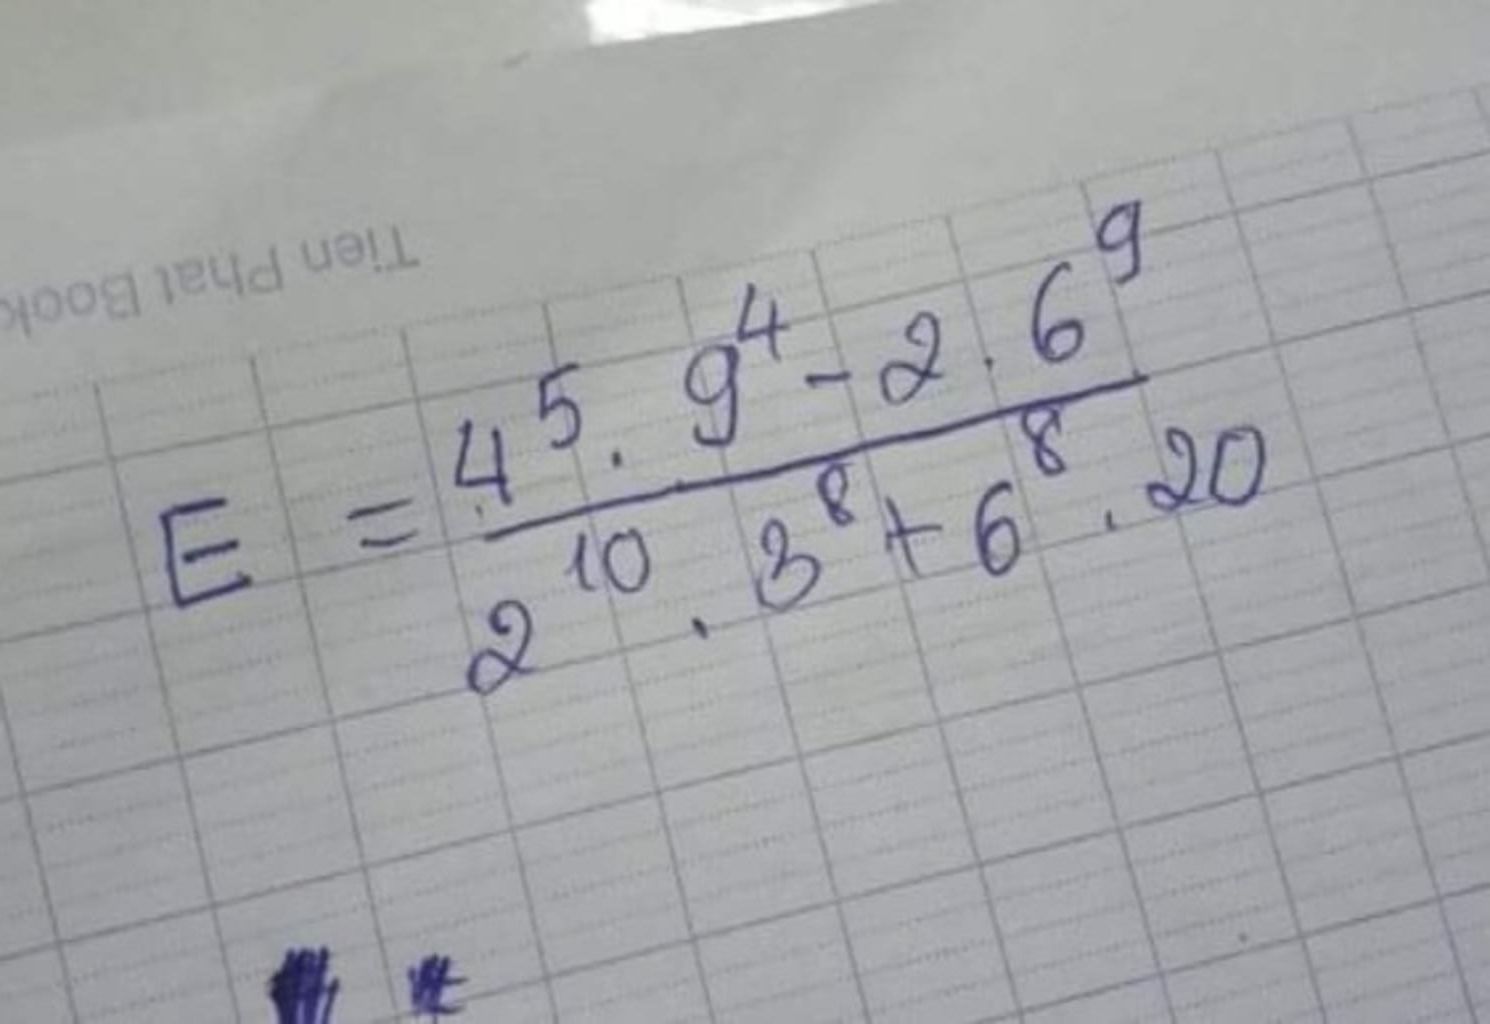 Tien Phat Book
E = \frac{4^5 . 9^4 - 2 . 6^9}{2^{10} . 3^8 + 6^8 . 20}